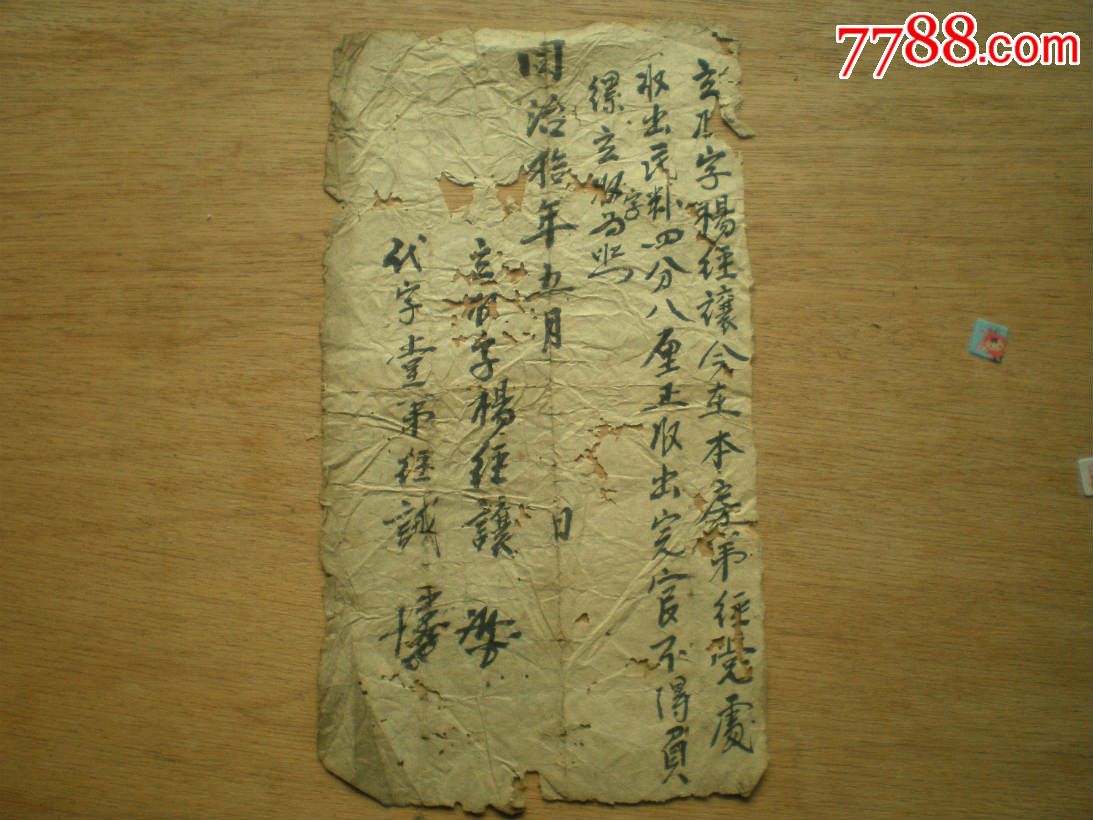 7788.com
立收字楊經讓今在本房弟經党處
收出民糧四分八厘正收出完官不得負
縲立收字為照
同治拾年五月 日
立收字楊經讓
代字堂弟經誠